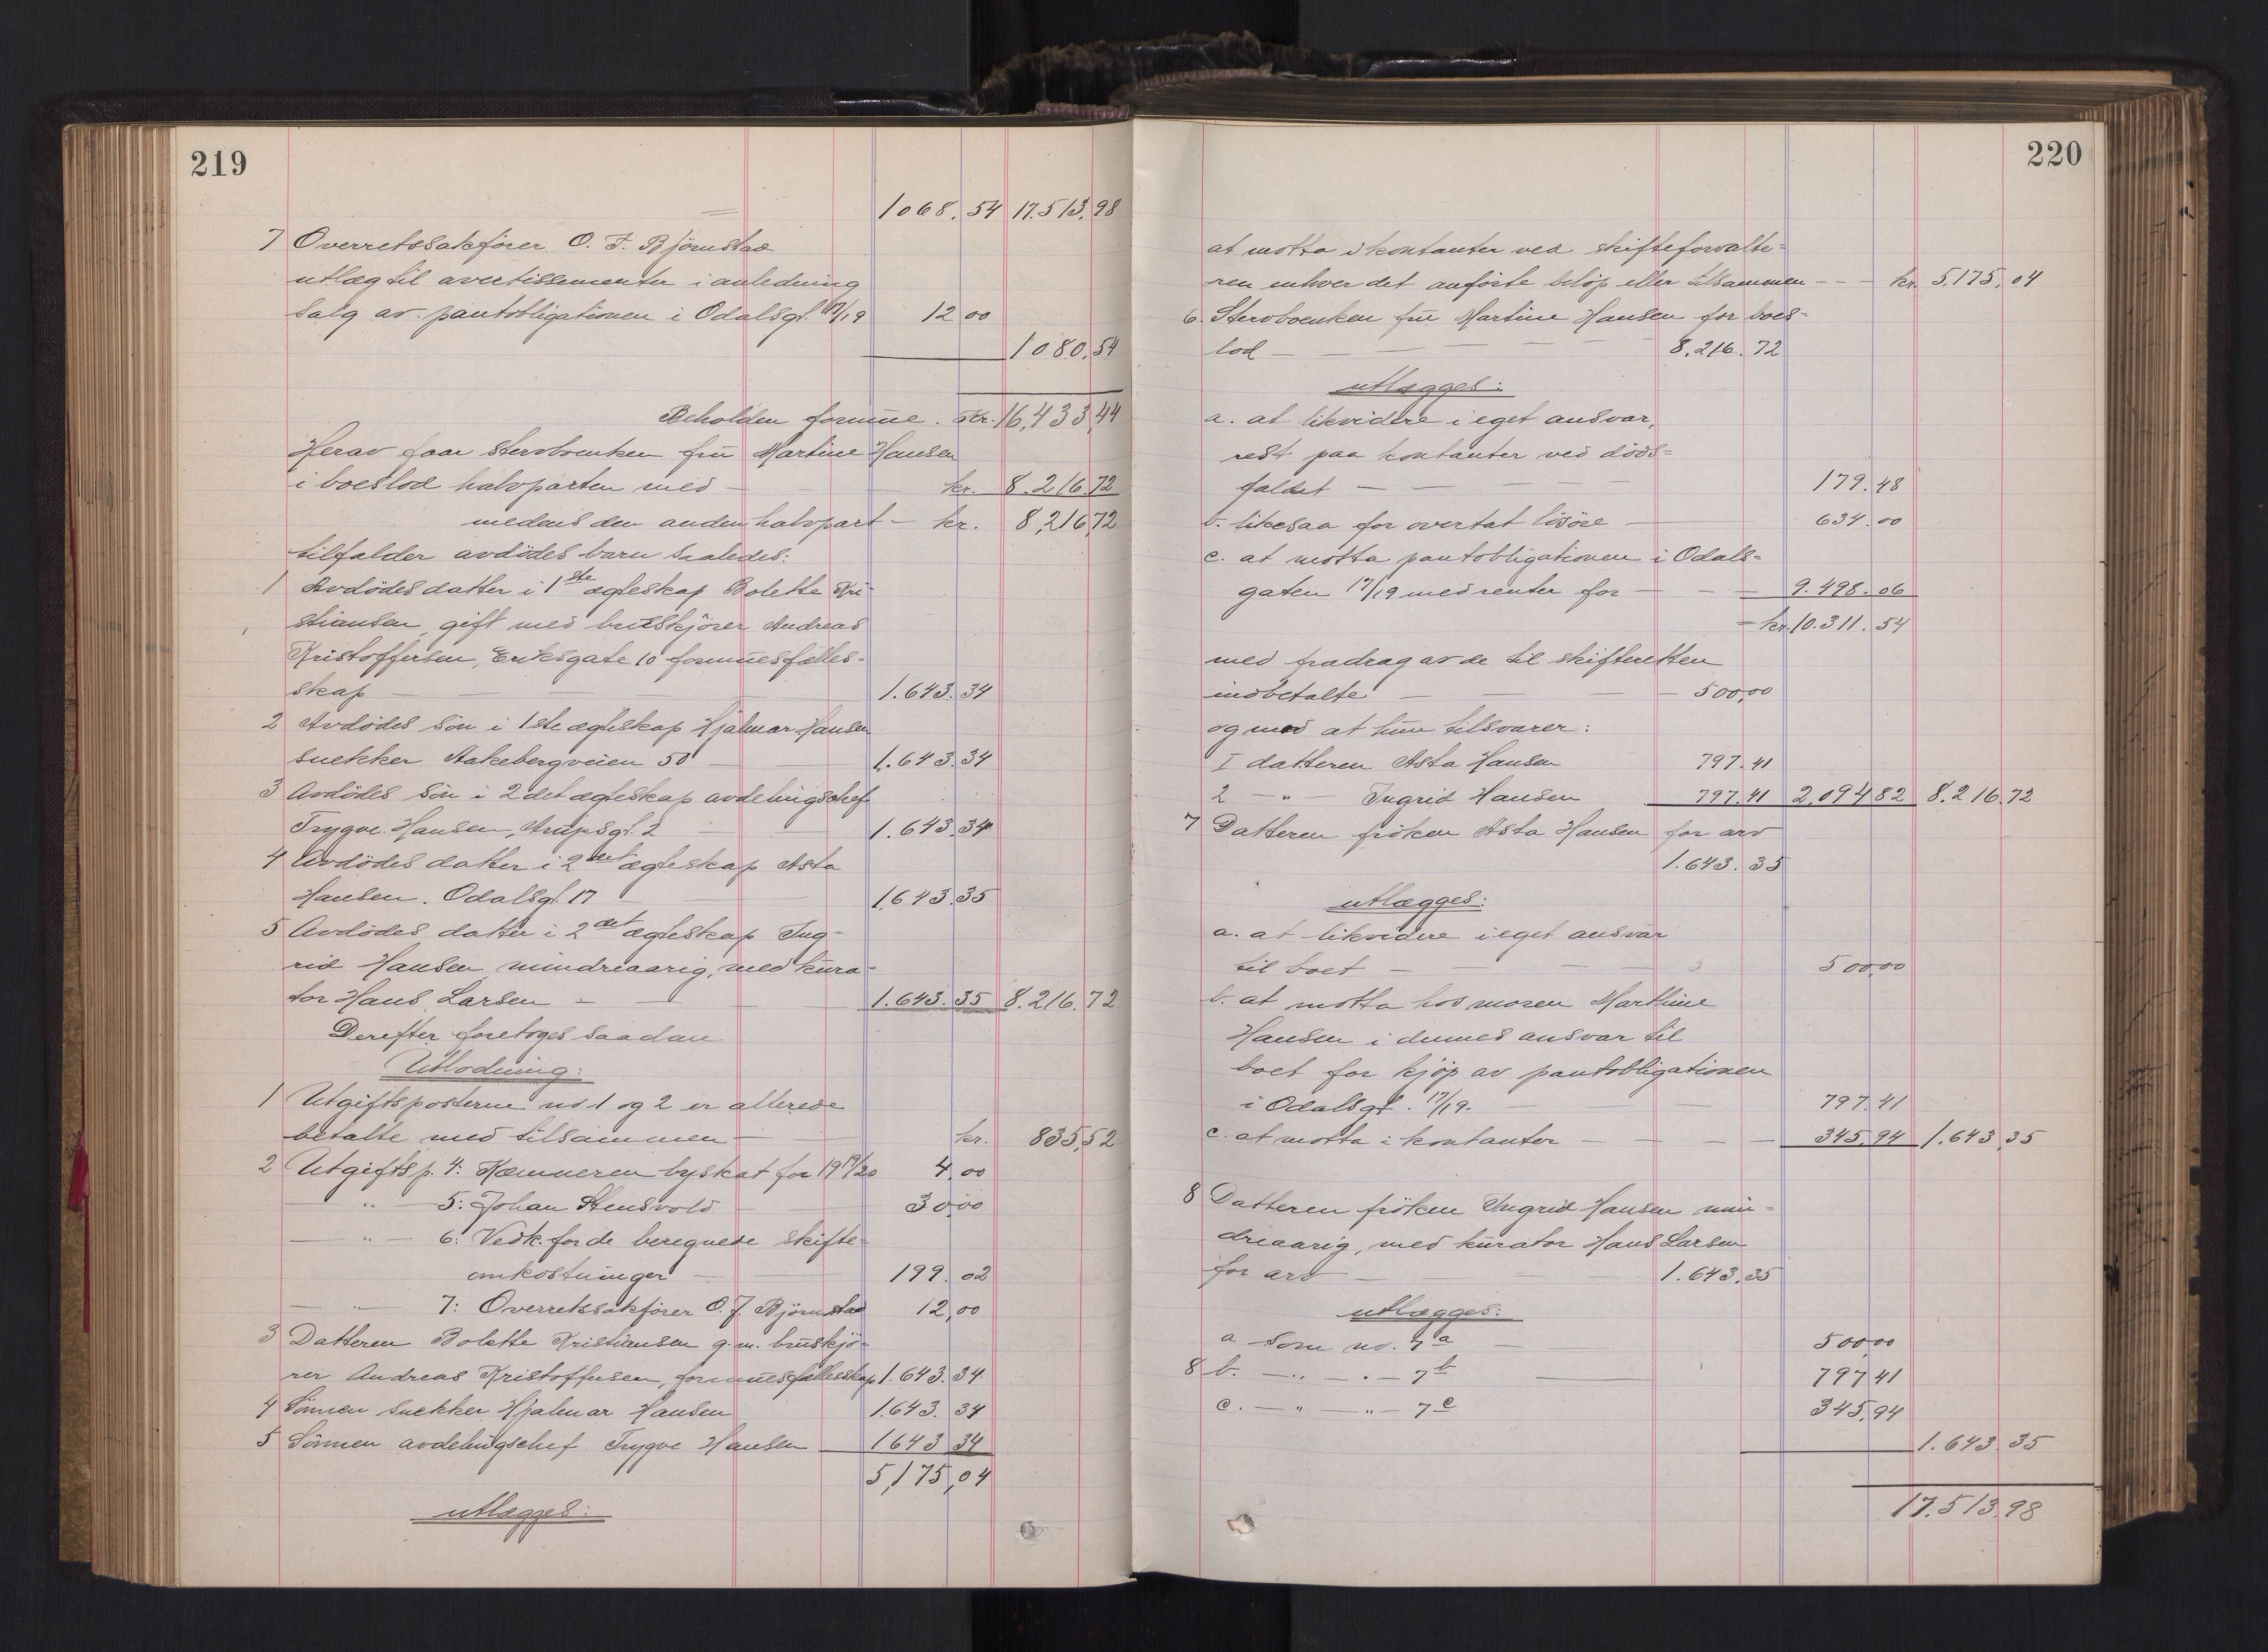 219
1068.54 17.513.98
7 Overretssakfører O. F. Bjørnstad
utlæg til avertissementer i anledning
salg av pantobligationen i Odalsgt. 17/19 12 00
1080,54
Beholden formue. Kr. 16,433,44
Herav faar stervboenken frū Martine Hansen
i boeslod halvparten med — kr. 8.216.72
medens den anden halvpart — kr. 8,216,72
tilfalder avdödes barn saaledes:
1 Avdödes datter i 1ste egteskap Bolette Kri-
stiansen, gift med bruskjörer Andreas
Kristoffersen, Eriksgate 10 formūesfælles-
skap — 1.643.34
2 Avdödes sön i 1ste egteskap Hjalmar Hansen
snekker Aakebergveien 50 — 1.643.34
3 Avdödes sön i 2det egteskap avdelingschef
Trygve Hansen, Arupsgt. 2 — 1.643.34
4 Avdödes datter i 2det egteskap Asta
Hansen. Odalsgt. 17 — 1643.35
5 Avdödes datter i 2det egteskap Ing-
rid Hansen, mindreaarig, med kūra-
tor Hans Larsen — 1.643.35 8.216.72
Derefter foretoges saadan
Utlodning:
1 Utgiftsposterne no 1 og 2 er allerede
betalte med tilsammen — kr. 835,52
2 Utgifts p. 4: Kæmneren byskat for 1919/20 4,00
— " — 5: Johan Stensvold — 30,00
— " — 6: Vedk. for de beregnede skifte-
omkostninger — 199.02
— " — 7: Overretssakfører O. F. Bjørnstad 12,00
3 Datteren Bolette Kristiansen g. m. brūskjö-
rer Andreas Kristoffersen, formūesfællesskap 1.643.34
4 Sönnen snekker Hjalmar Hansen 1.643.34
5 Sönnen avdelingschef Trygve Hansen — 1643 34
5,175,04
utlægges:
220
at motta i kontanter ved skifteforvalte-
ren enhver det anförte belöp eller tilsammen — — — kr. 5,175,04
6. Stervboenken frū Martine Hansen for boes-
lod — 8,216.72
utlægges:
a. at likvidere i eget ansvar,
rest paa kontanter ved döds-
faldet — 179.48
b. likesaa for overtat lösöre — 634.00
c. at motta pantobligationen i Odals-
gaten 17/19 med renter for — 9.498.06
— kr. 10.311.54
med fradrag av de til skifteretten
indbetalte — 500,00
og med at hūn tilsvarer:
I datteren Asta Hansen 797.41
2 — " — Ingrid Hansen 797.41 2,094 82 8.216.72
7 Datteren fröken Asta Hansen for arv
1.643.35
utlægges:
a. at likvidere i eget ansvar
til boet — 500,00
b. at motta hos moren Marthine
Hansen i dennes ansvar til
boet for kjöp av pantobligationen
i Odalsgt. 17/19. — 797.41
c. at motta i kontanter — 345,94 1.643,35
8 Datteren fröken Ingrid Hansen min-
dreaarig, med kūrator Hans Larsen
for arv — 1.643.35
utlægges:
a Som no. 7a — 500,00
8 b. — " — " — 7b — 797 41
c. — " — " — 7c 345,94
1.643.35
17.513.98